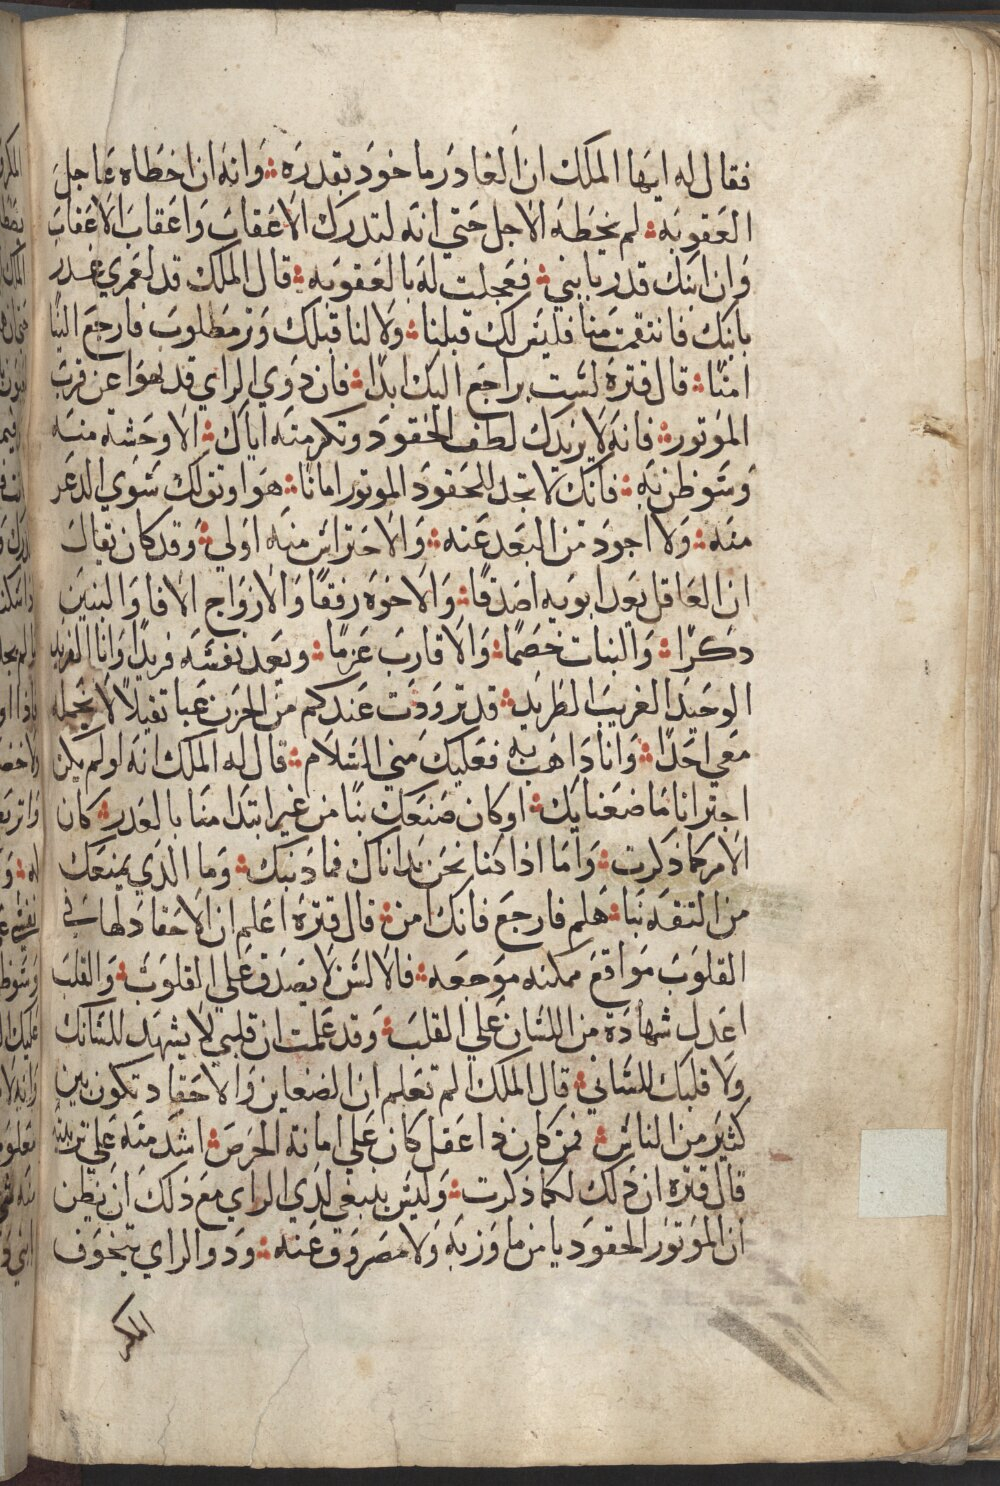 فقال له ايها الملك ان الغادر ماخوذ بقدره وانه ان اخطاه عاجل
العقوبه لم يخطه الاجل حتي انه لتدرك الاعقاب واعقاب الاعقاب
وان ابنك قدر يابني فعجلت له بالعقوبه قال الملك قد لعمري غدر
بابنك فانتقمت منا فليس لك قبلنا ولا لنا قبلك وتر مطلوب فارجع الينا
امنا قال قتره لست براجع اليك ابدا فان ذوي الراي قد نهوا عن قرب
الموتور فانه لا يزيدك لطف الحقود وتكرمته اياك الا وحشه منه
وسو ظن به فانك لا تجد للحقود الموتور امانا هو اوثق لك سوي الدعر
منه ولا اجود من البعد عنه والاحتراس منه اولي وقد كان يقال
ان العاقل يعد ابويه اصدقا والاخوه رفقا والازواج الافا والبنين
ذكرا والبنات خصما والاقارب غرما ويعد نفسه فريدا وانا الفريد
الوحيد الغريب الطريد قد تزودت عندكم من الحزن عبا ثقيلا لا يحمله
معي احدا وانا ذاهب به فعليك مني السلام قال له الملك انه لو لم يكن
اجترانا ما صنعنا بك او كان صنعك بنا من غير ابتدا منا بالغدر كان
الامر كما ذكرت واما اذا كنا نحن بداناك فما ذنبك وما الذي يمنعك
من الثقه بنا هلم فارجع فانك امن قال قتره اعلم ان الاحقاد لها في
القلوب مواقع ممكنه موجعه فالالسن لا يصدق علي القلوب والقلب
اعدل شهادة من اللسان علي القلب وقد علمت ان قلبي لا يشهد للسانك
ولا قلبك للساني قال الملك الم تعلم ان الضغاين والاحقاد تكون بين
كثير من الناس فمن كان ذا عقل كان علي اماتة الحرص اشد منه علي تربيته
قال قتره ان ذلك لكما ذكرت وليس ينبغي لذي الراي مع ذلك ان يظن
ان الموتور الحقود يا من ما وزبه ولا مصروف عنه وذو الراي يتخوف
المكر